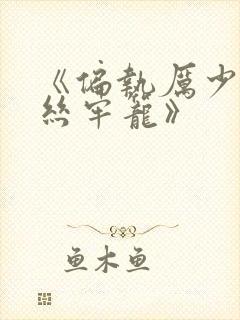 《偏執厲少
絲牢籠》
鱼木鱼